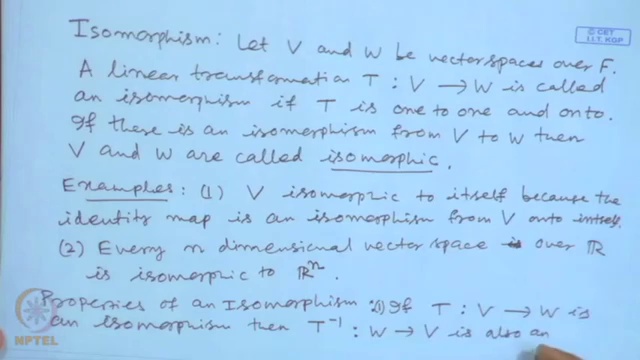 © CET
I.I.T. KGP
Isomorphism: Let V and W be vector spaces over F.
A linear transformation T : V → W is called
an isomorphism if T is one to one and onto.
If there is an isomorphism from V to W then
V and W are called isomorphic.
Examples: (1) V isomorphic to itself because the
identity map is an isomorphism from V onto itself.
(2) Every n dimensional vector space over ℝ
is isomorphic to ℝⁿ.
Properties of an Isomorphism: (1) If T : V → W is
an isomorphism then T⁻¹ : W → V is also an
NPTEL